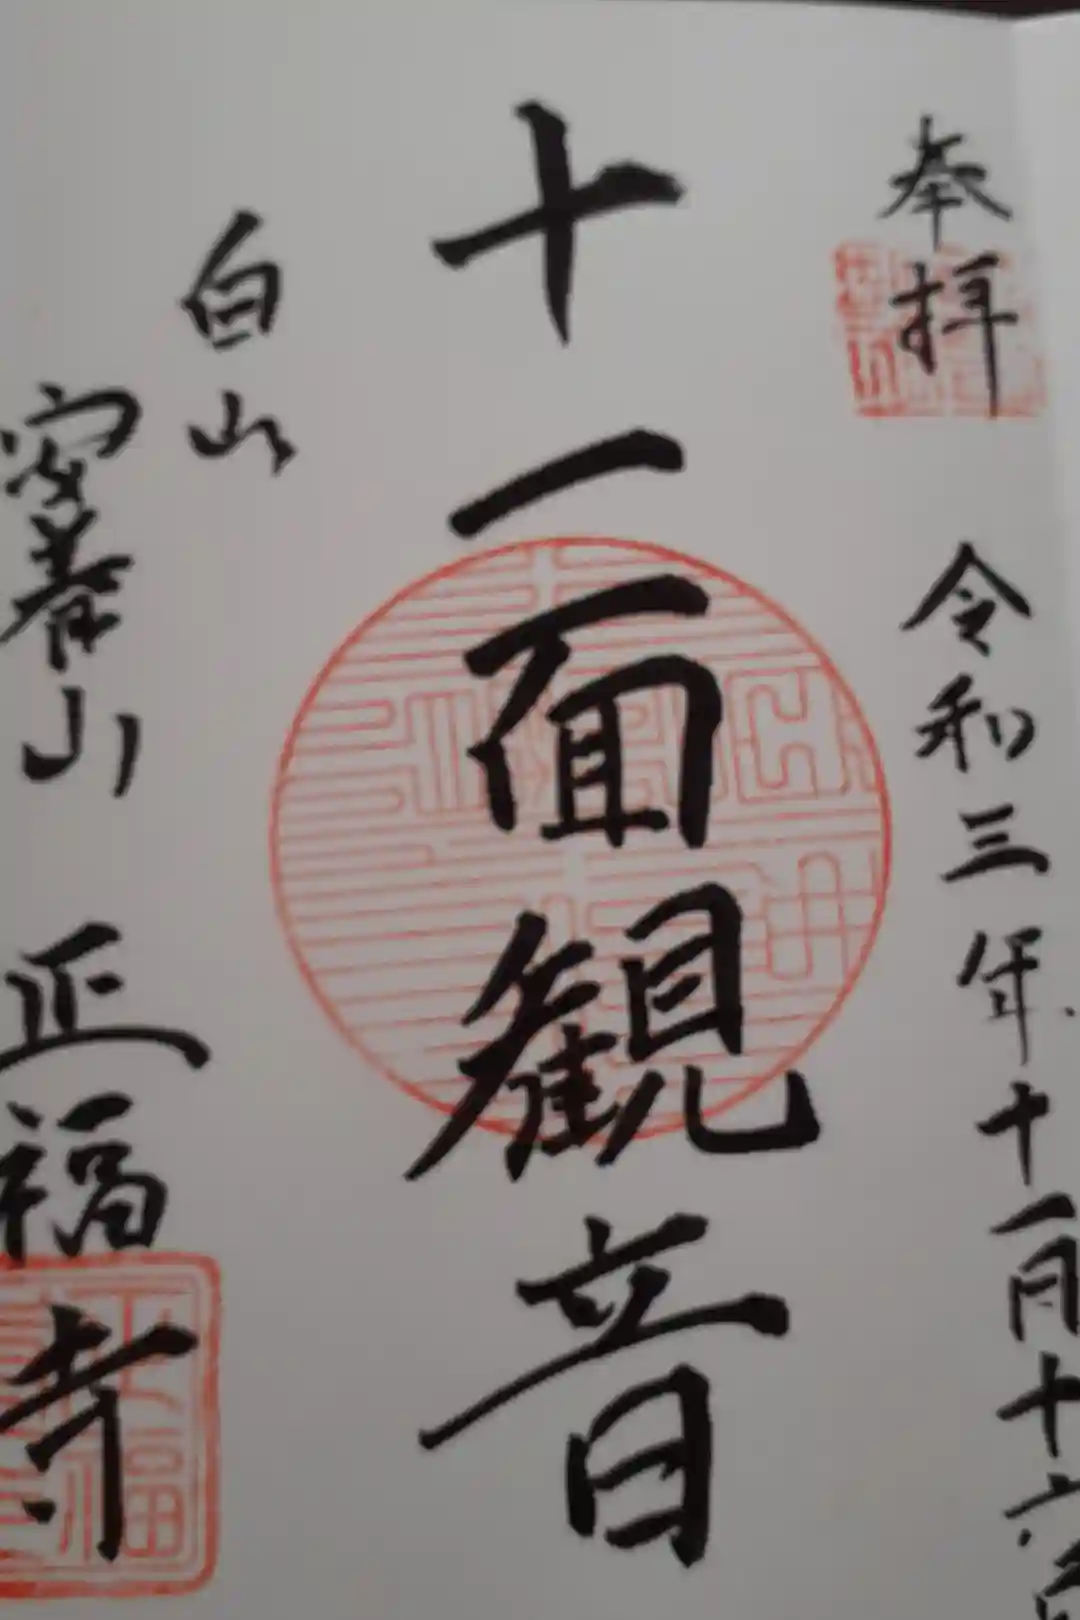 奉拝
令和三年十一月十六日
十一面観音
白山
山 正福寺